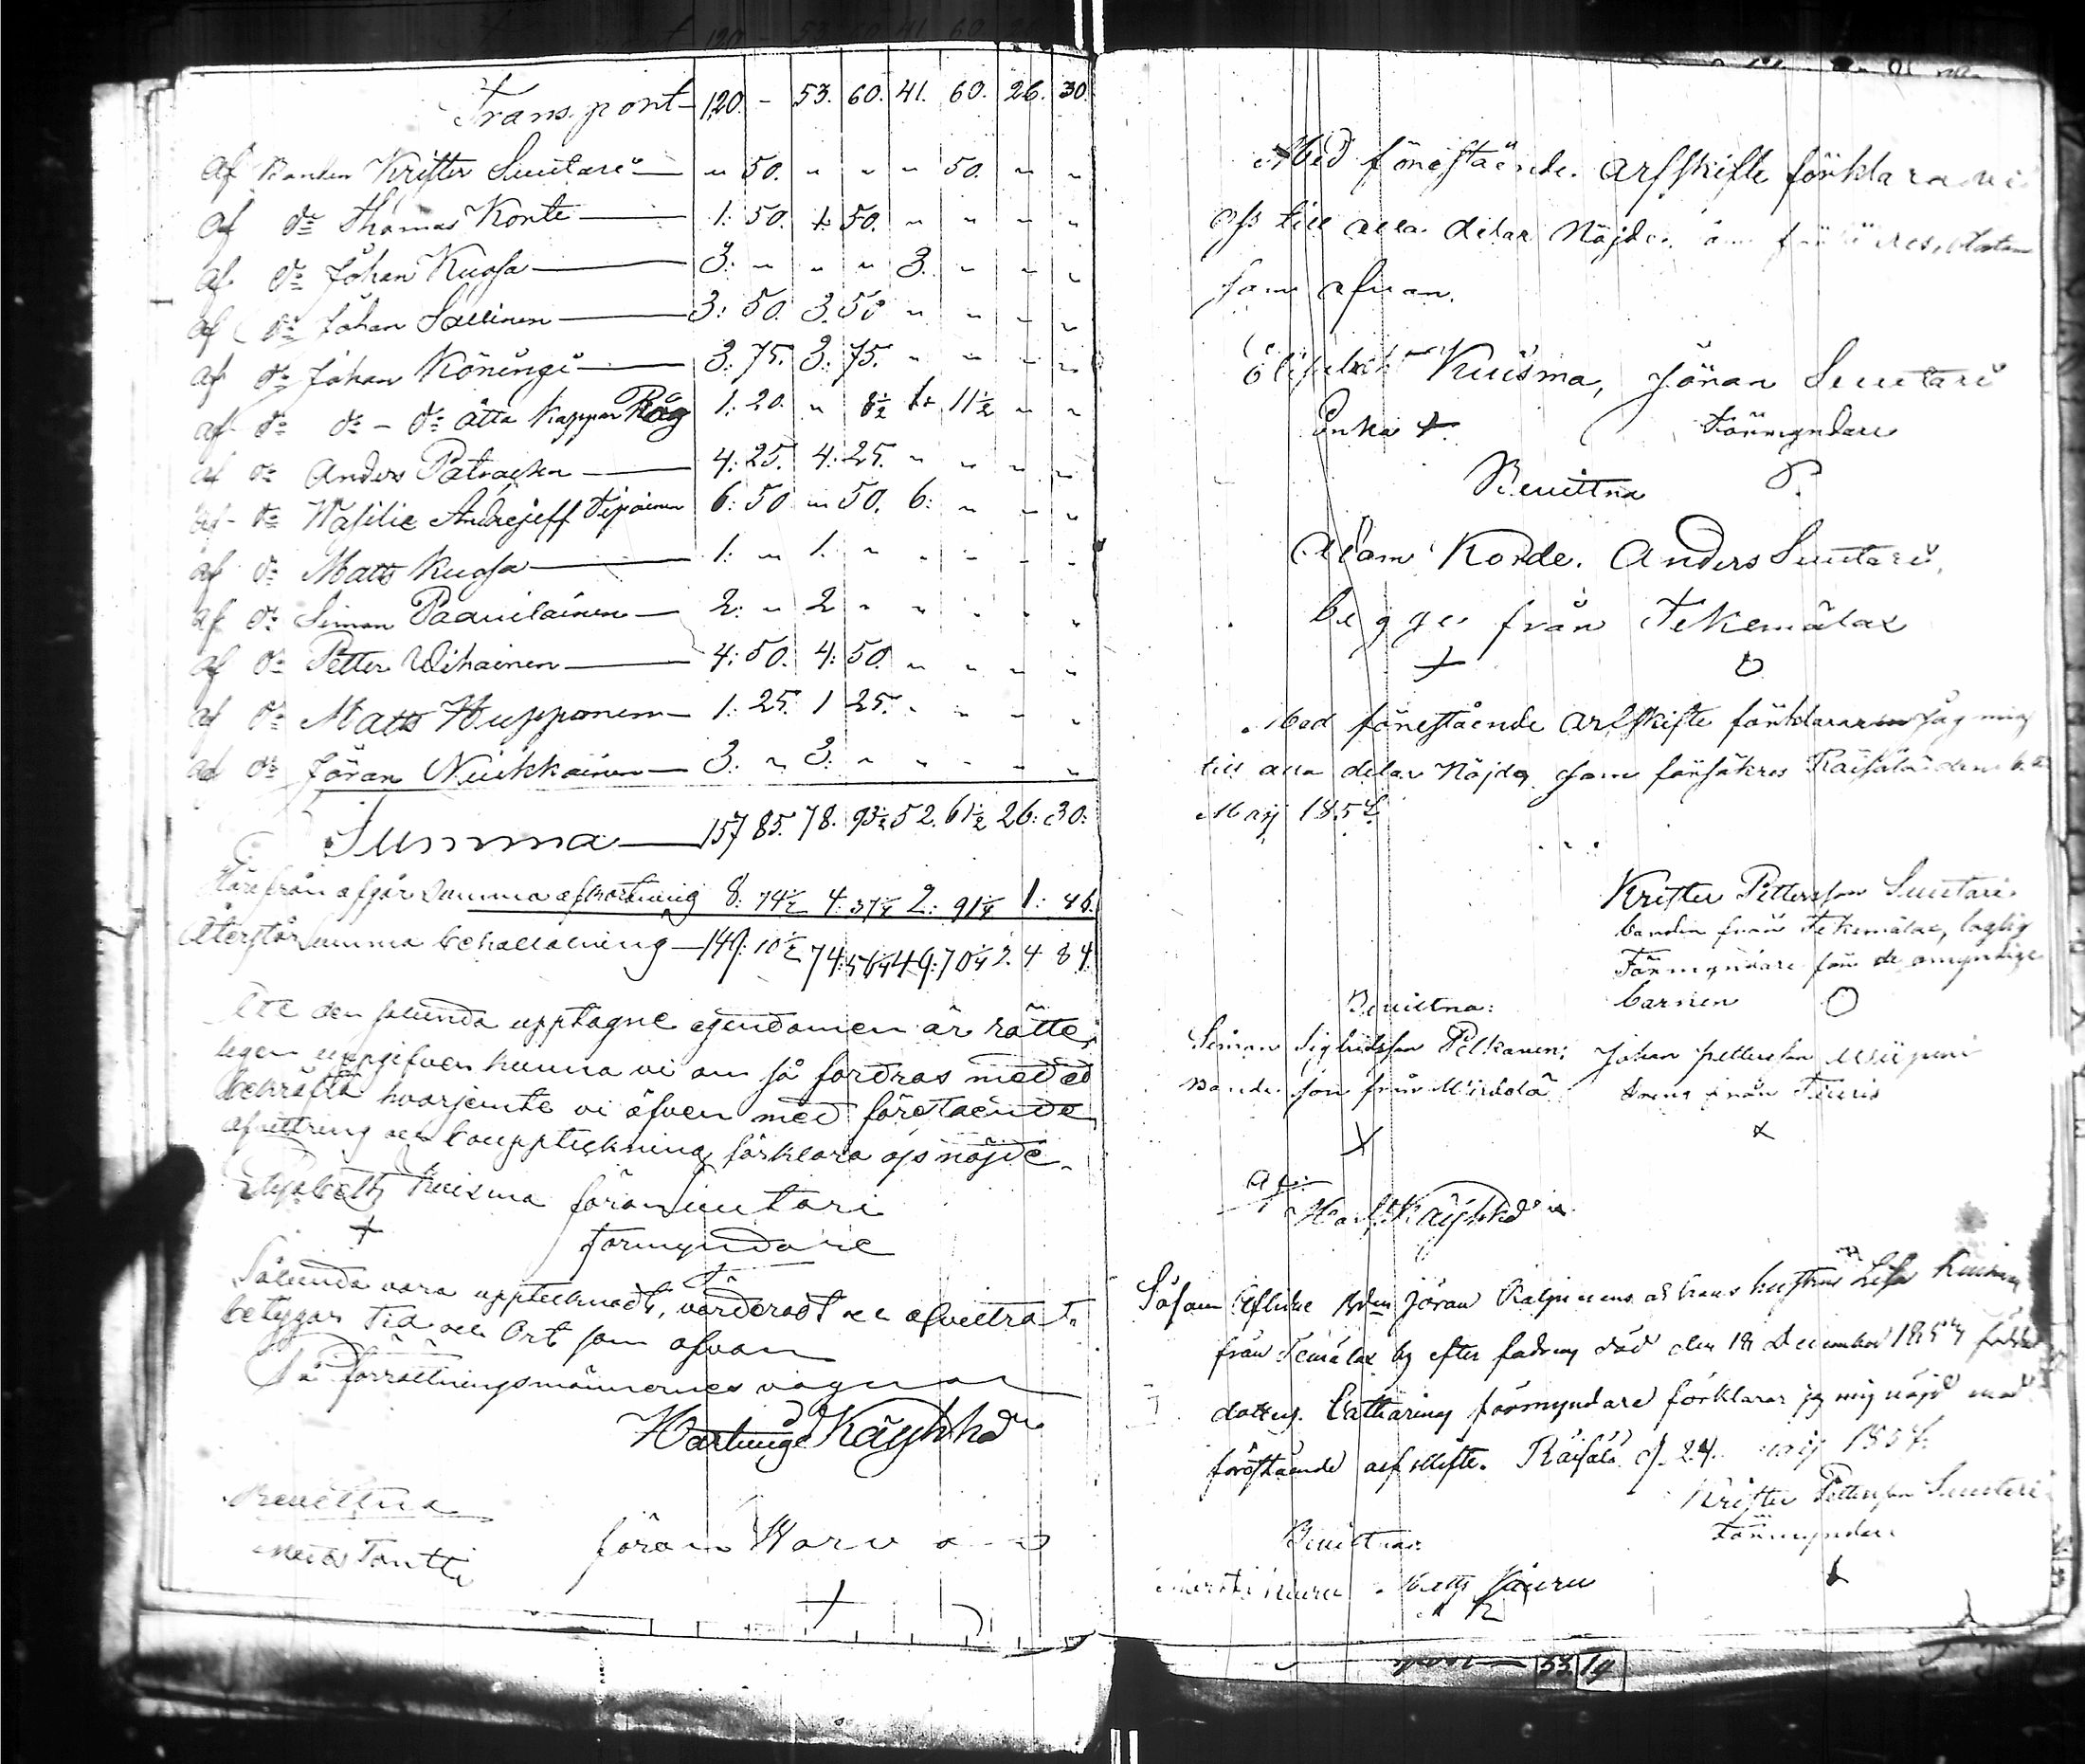 Transport 120. - 53. 60. 41. 60. 26. 30.
af Bonden Krister Suutari — " 50. " " " 50. " "
af do Thomas Konte — 1: 50. 1: 50. " " " "
af do Johan Kuosa — 3. " " " 3. " " "
af do Johan Sallinen — 3: 50. 3. 50 " " " "
af do Johan Köningi — 3. 75. 3: 75. " " " "
af do do - do åtta kappar Råg 1: 20. " 8½ 1: 11½ " "
af do Anders Patracken — 4: 25. 4: 25. " " " "
af do Wasilie Andrejeff 6: 50 " 50. 6: " " "
af do Matts Kuosa — 1: " 1. " " " " "
af do Simon Paavilainen — 2: " 2 " " " " "
af do Petter Wihainen — 4: 50. 4: 50. " " " "
af do Matts Hupponen — 1: 25. 1 25. " " " "
af do Jöran Nuikkainen — 3: " 3: " " " " "
Summa — 157 85. 78. 93½ 52. 61½ 26: 30:
Härifrån afgår Summa afkortning 8: 74½ 4: 37¼ 2: 91¼ 1: 46.
Återstår Summa behållning — 149: 10½ 74: 56¼ 49: 70¼ 24 84.
Att den sålunda upptagne egendomen är rätte-
ligen uppgifven kunna vi om så fordras med ed
bekräfta hvarjemte vi äfven med förestående
afvittring och bouppteckning förklara oss nöjde.
Elisabeth Kuisma Jöran Suutari
+ förmyndare
Sålunda vara upptecknadt, värderadt och afvittradt
betygar Tid och Ort som ofvan
På förrättningsmännernes vägnar
Hartvig Käyhkö
Bevittna
Matts Tontti Jöran Warv
+
Med förestående arfskifte förklara vi
oss till alla delar nöjde.
som ofvan.
Elisabeth Kuisma, Jöran Suutari
Enka + Förmyndare
Bevittna
Adam Korde. Anders Suutari,
begge från Tekemälax
+ O
Med förestående arfskifte förklarar jag mig
till alla delar nöjdg som försäkres Räisälä den
Maij 185
Krister Pettersson Suutari
bonden från Tekemälax, laglig
Förmyndare för de omyndige
Bevittna: barnen O
Simon Sigfridsson Pelkonen; Johan Pettersson
Bonde son från dreng från Tiuris
+ x
Hart. Käyhkö
Såsom Aflidne Bden Jöran och hans hustru Lisa Kuisma
från by efter fadrens död den 18 December 185 födde
dotters Catharina förmyndare förklarar jag mig nöjd med
förestående arfskifte. Räisälä d. 24. maij 185
Krister Pettersson Suutari
Bevittnar: Förmyndare
Matts Kauru +
53 19